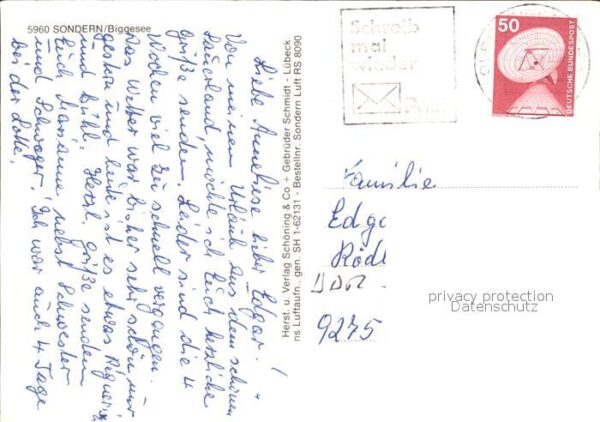 5960 SONDERN/Biggesee
Liebe Anneliese lieber Edgar!
Von meinem Urlaub aus dem schönen
Sauerland, möchte ich Euch herzliche
Grüße senden. Leider sind die 4
Wochen viel zu schnell vergangen.
Das Wetter war bisher sehr schön nur
gestern und heute ist es etwas Regnerig
und kühl. Herzl. grüße senden
Euch Marianne nebst Schwester
und Schwager. Ich war auch 4 Tage
bei der Lotte,
Herst. u. Verlag Schöning & Co + Gebrüder Schmidt - Lübeck
ns Luftaufn., gen. SH 1-62131 - Bestellnr. Sondern Luft RS 8090
Schreib
mal
wieder
Post
50
DEUTSCHE BUNDESPOST
Familie
Edga
Röd
DDR
9275
privacy protection
Datenschutz